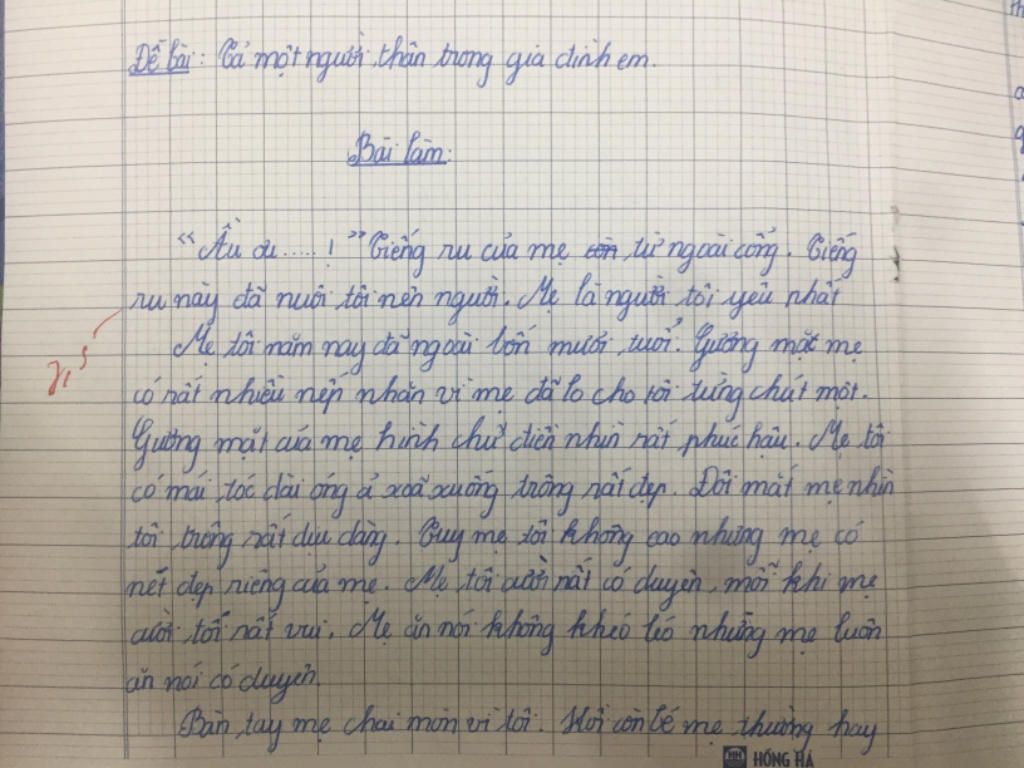 Đề bài: Tả một người thân trong gia đình em.
Bài làm:
"Ầu ơ.....!" Tiếng ru của mẹ còn từ ngoài cổng. Tiếng
ru này đã nuôi tôi nên người. Mẹ là người tôi yêu nhất
Mẹ tôi năm nay đã ngoài bốn mươi tuổi. Gương mặt mẹ
có rất nhiều nếp nhăn vì mẹ đã lo cho tôi từng chút một.
Gương mặt của mẹ hình chữ điền nhìn rất phúc hậu. Mẹ tôi
có mái tóc dài óng ả xoã xuống trông rất đẹp. Đôi mắt mẹ nhìn
tôi trông rất dịu dàng. Tuy mẹ tôi không cao nhưng mẹ có
nét đẹp riêng của mẹ. Mẹ tôi cười rất có duyên, mỗi khi mẹ
cười tôi rất vui. Mẹ ăn nói không khéo léo nhưng mẹ luôn
ăn nói có duyên.
Bàn tay mẹ chai mòn vì tôi. Hồi còn bé mẹ thường hay
HH HỒNG HÀ